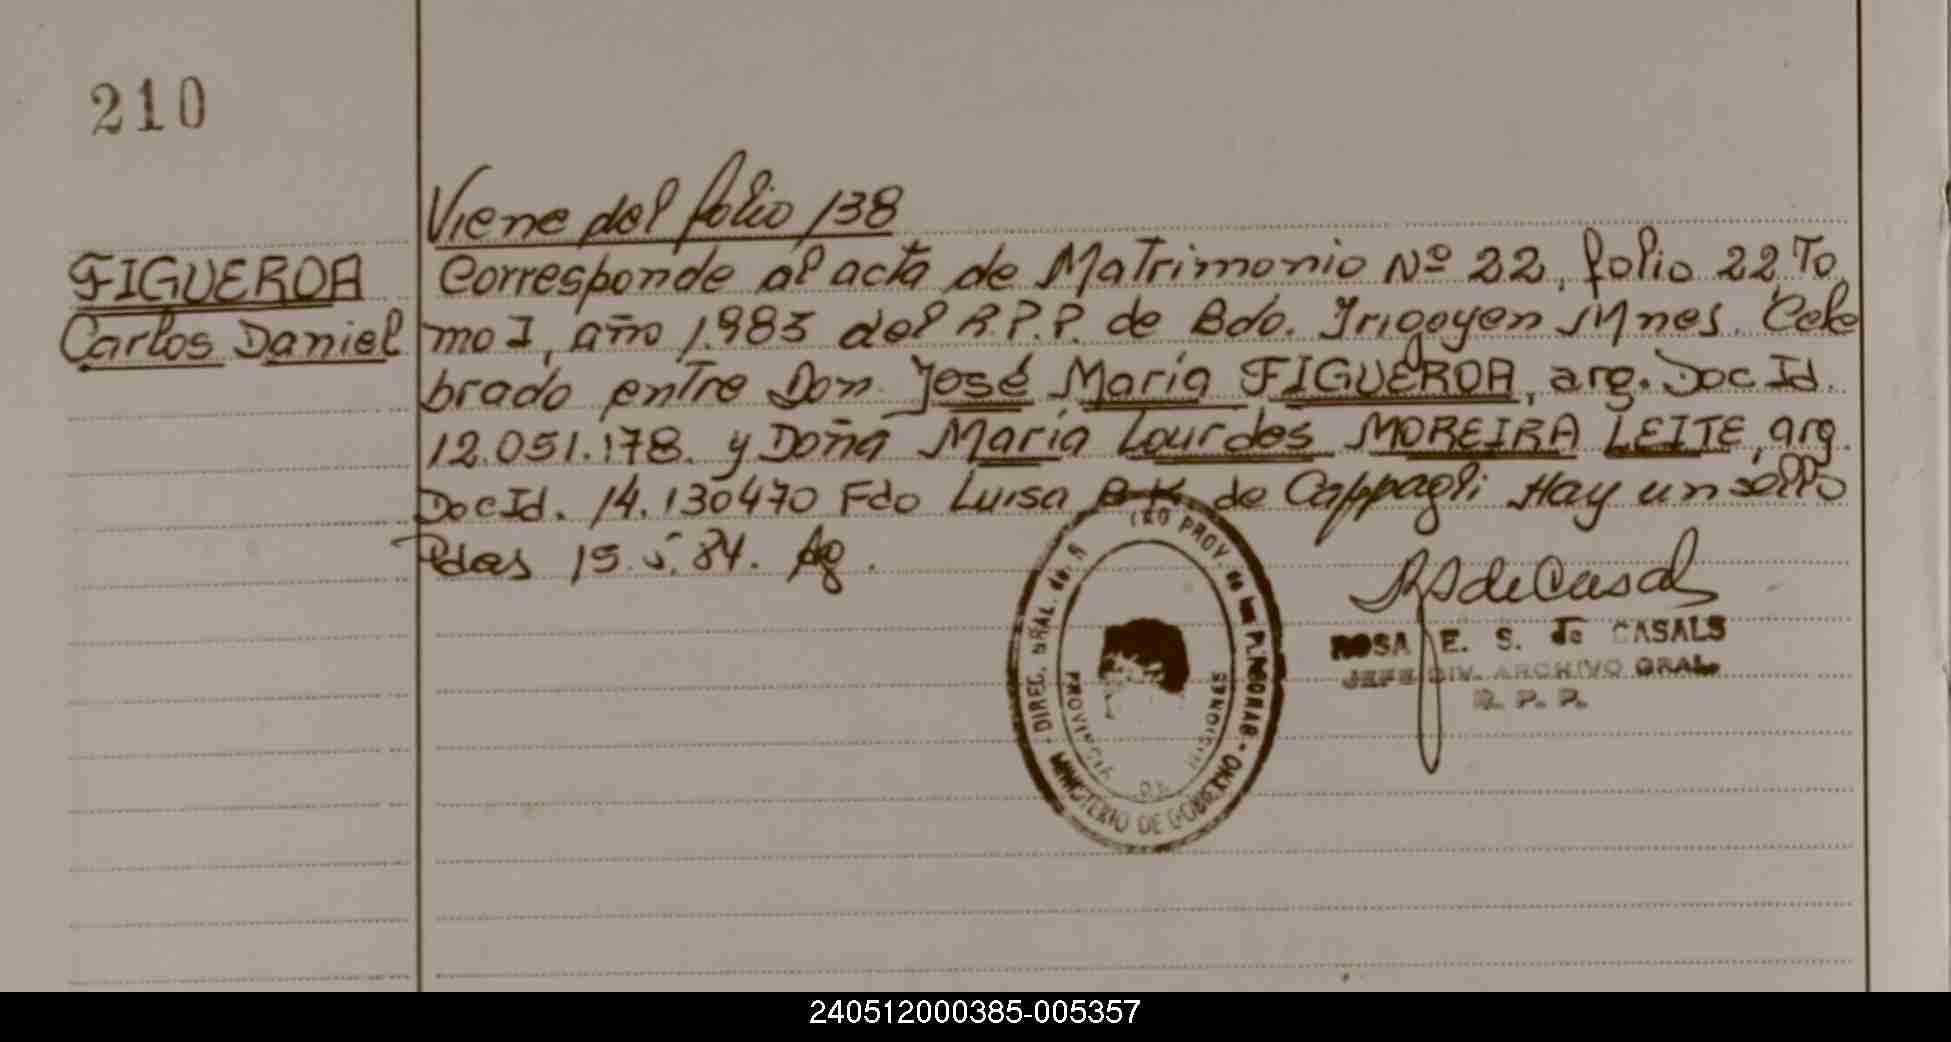 210
Viene del folio 138
FIGUEROA
Carlos Daniel
Corresponde al acta de Matrimonio Nº 22, folio 22, To
mo I, año 1.983 del R.P.P. de Bdo. Irigoyen Mnes. Cele
brado entre Don José María FIGUEROA, arg. Doc Id.
12.051.178. y Doña María Lourdes MOREIRA LEITE, arg.
Doc Id. 14.130470 Fdo Luisa de Cappagli Hay un sello
Pdas 15.5.84.
ROSA E. S. de CASALS
JEFE DIV. ARCHIVO GRAL.
R. P. P.
DIREC. GRAL. de
PROV. de las PERSONAS
MINISTERIO DE GOBIERNO
PROVINCIA DE MISIONES
240512000385-005357